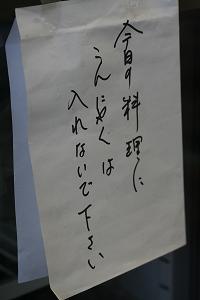 今日の料理に
こんにゃくは
入れないで下さい